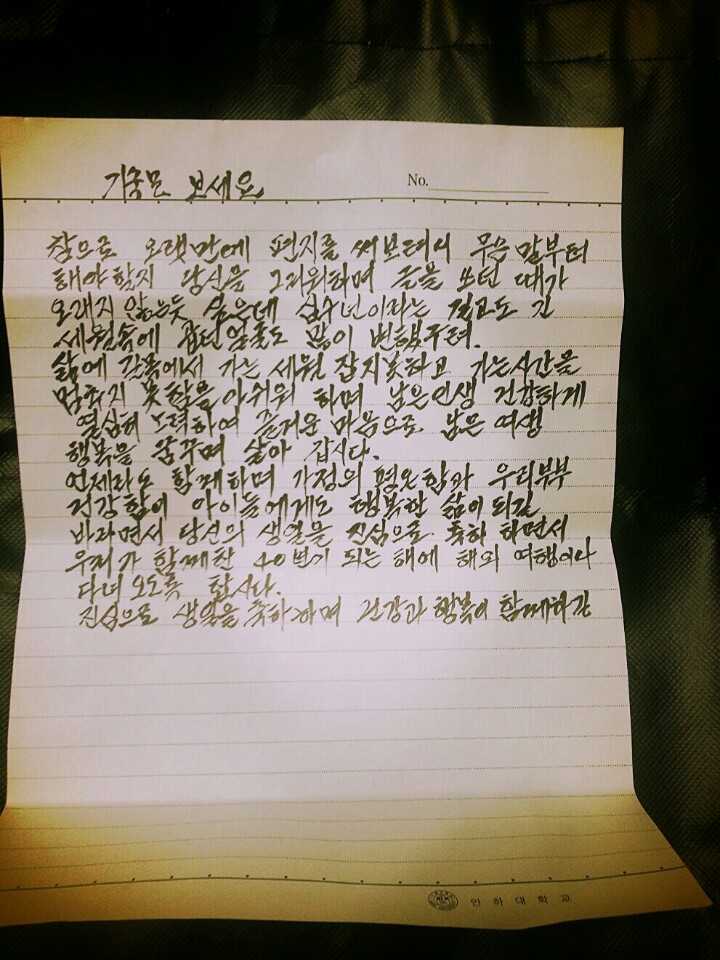 보세요
No.
참으로 오랫만에 편지를 써보려니 무슨 말부터
해야할지 당신을 그리워하며 글을 쓰던 때가
오래지 않는듯 싶은데 십수년이라는 길고도 긴
세월속에 얼굴도 많이 변했구려.
삶에 길목에서 가는 세월 잡지못하고 가는시간을
멈추지 못함을 아쉬워 하며 남은인생 건강하게
열심히 노력하여 즐거운 마음으로 남은 여생
행복을 꿈꾸며 살아 갑시다.
언제라도 함께하며 가정의 평온함과 우리부부
건강함이 아이들에게도 행복한 삶이 되길
바라면서 당신의 생일을 진심으로 축하 하면서
우리가 함께한 40번기 되는 해에 해외 여행이나
다녀 오도록 합시다.
진심으로 생일을 축하하며 건강과 행복이 함께하길
인하대학교